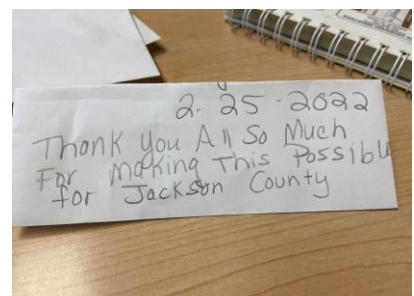 2-25-2022
Thank You All So Much
For Making This Possible
for Jackson County